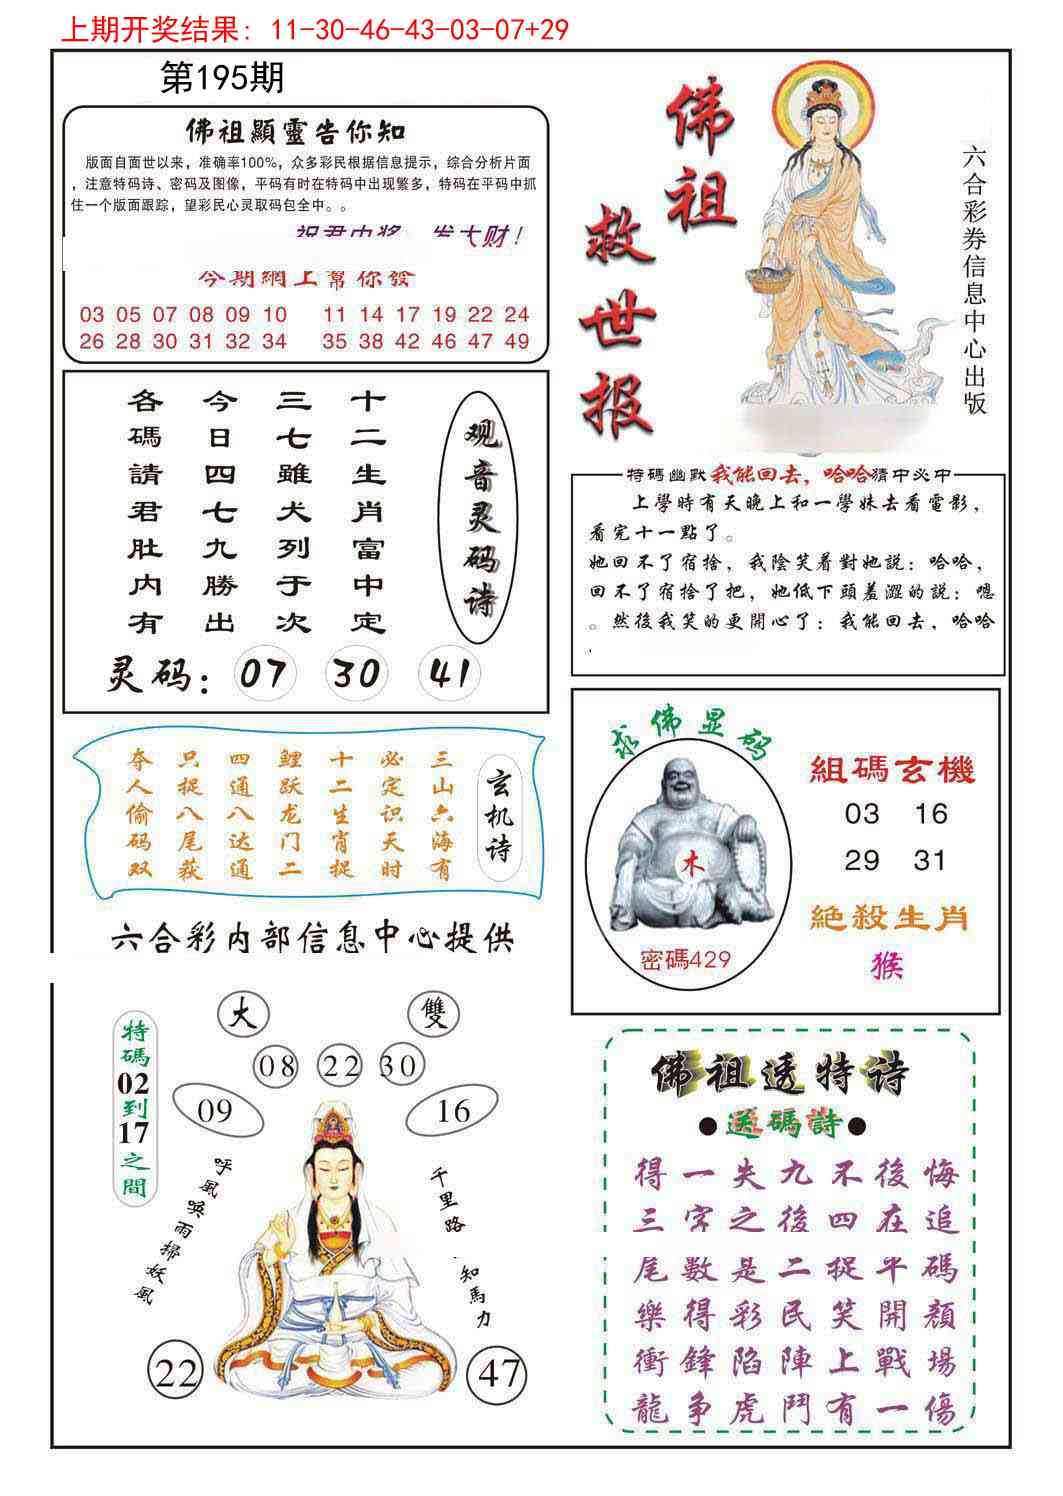 上期开奖结果: 11-30-46-43-03-07+29
第195期
佛祖顯靈告你知
版面自面世以来，准确率100%，众多彩民根据信息提示，综合分析片面
，注意特码诗、密码及图像，平码有时在特码中出现繁多，特码在平码中抓
住一个版面跟踪，望彩民心灵取码包全中。。
祝君中奖 发大财！
今期網上幫你發
03 05 07 08 09 10 11 14 17 19 22 24
26 28 30 31 32 34 35 38 42 46 47 49
佛祖
救世报
六合彩券信息中心出版
观音灵码诗
十二生肖富中定
三七雖犬列于次
今日四七九勝出
各碼請君肚内有
灵码: 07 30 41
特碼幽默我能回去，哈哈猜中必中
上學時有天晚上和一學妹去看電影，
看完十一點了。
她回不了宿捨，我陰笑着對她説：哈哈，
回不了宿捨了把，她低下頭羞澀的説：嗯
。然後我笑的更開心了：我能回去，哈哈
.
玄机诗
三山六海有
必定识天时
十二生肖捉
鲤跃龙门二
四通八达通
只捉八尾获
夺人偷码双
六合彩内部信息中心提供
求佛显码
木
密碼429
組碼玄機
03 16
29 31
絶殺生肖
猴
特碼02到17之間
大 雙
08 22 30
09 16
呼風唤雨掃妖風
千里路 知馬力
22 47
佛祖透特诗
●送碼詩●
得一失九不後悔
三字之後四在追
尾數是二捉平碼
樂得彩民笑開顏
衝鋒陷陣上戰場
龍争虎鬥有一傷